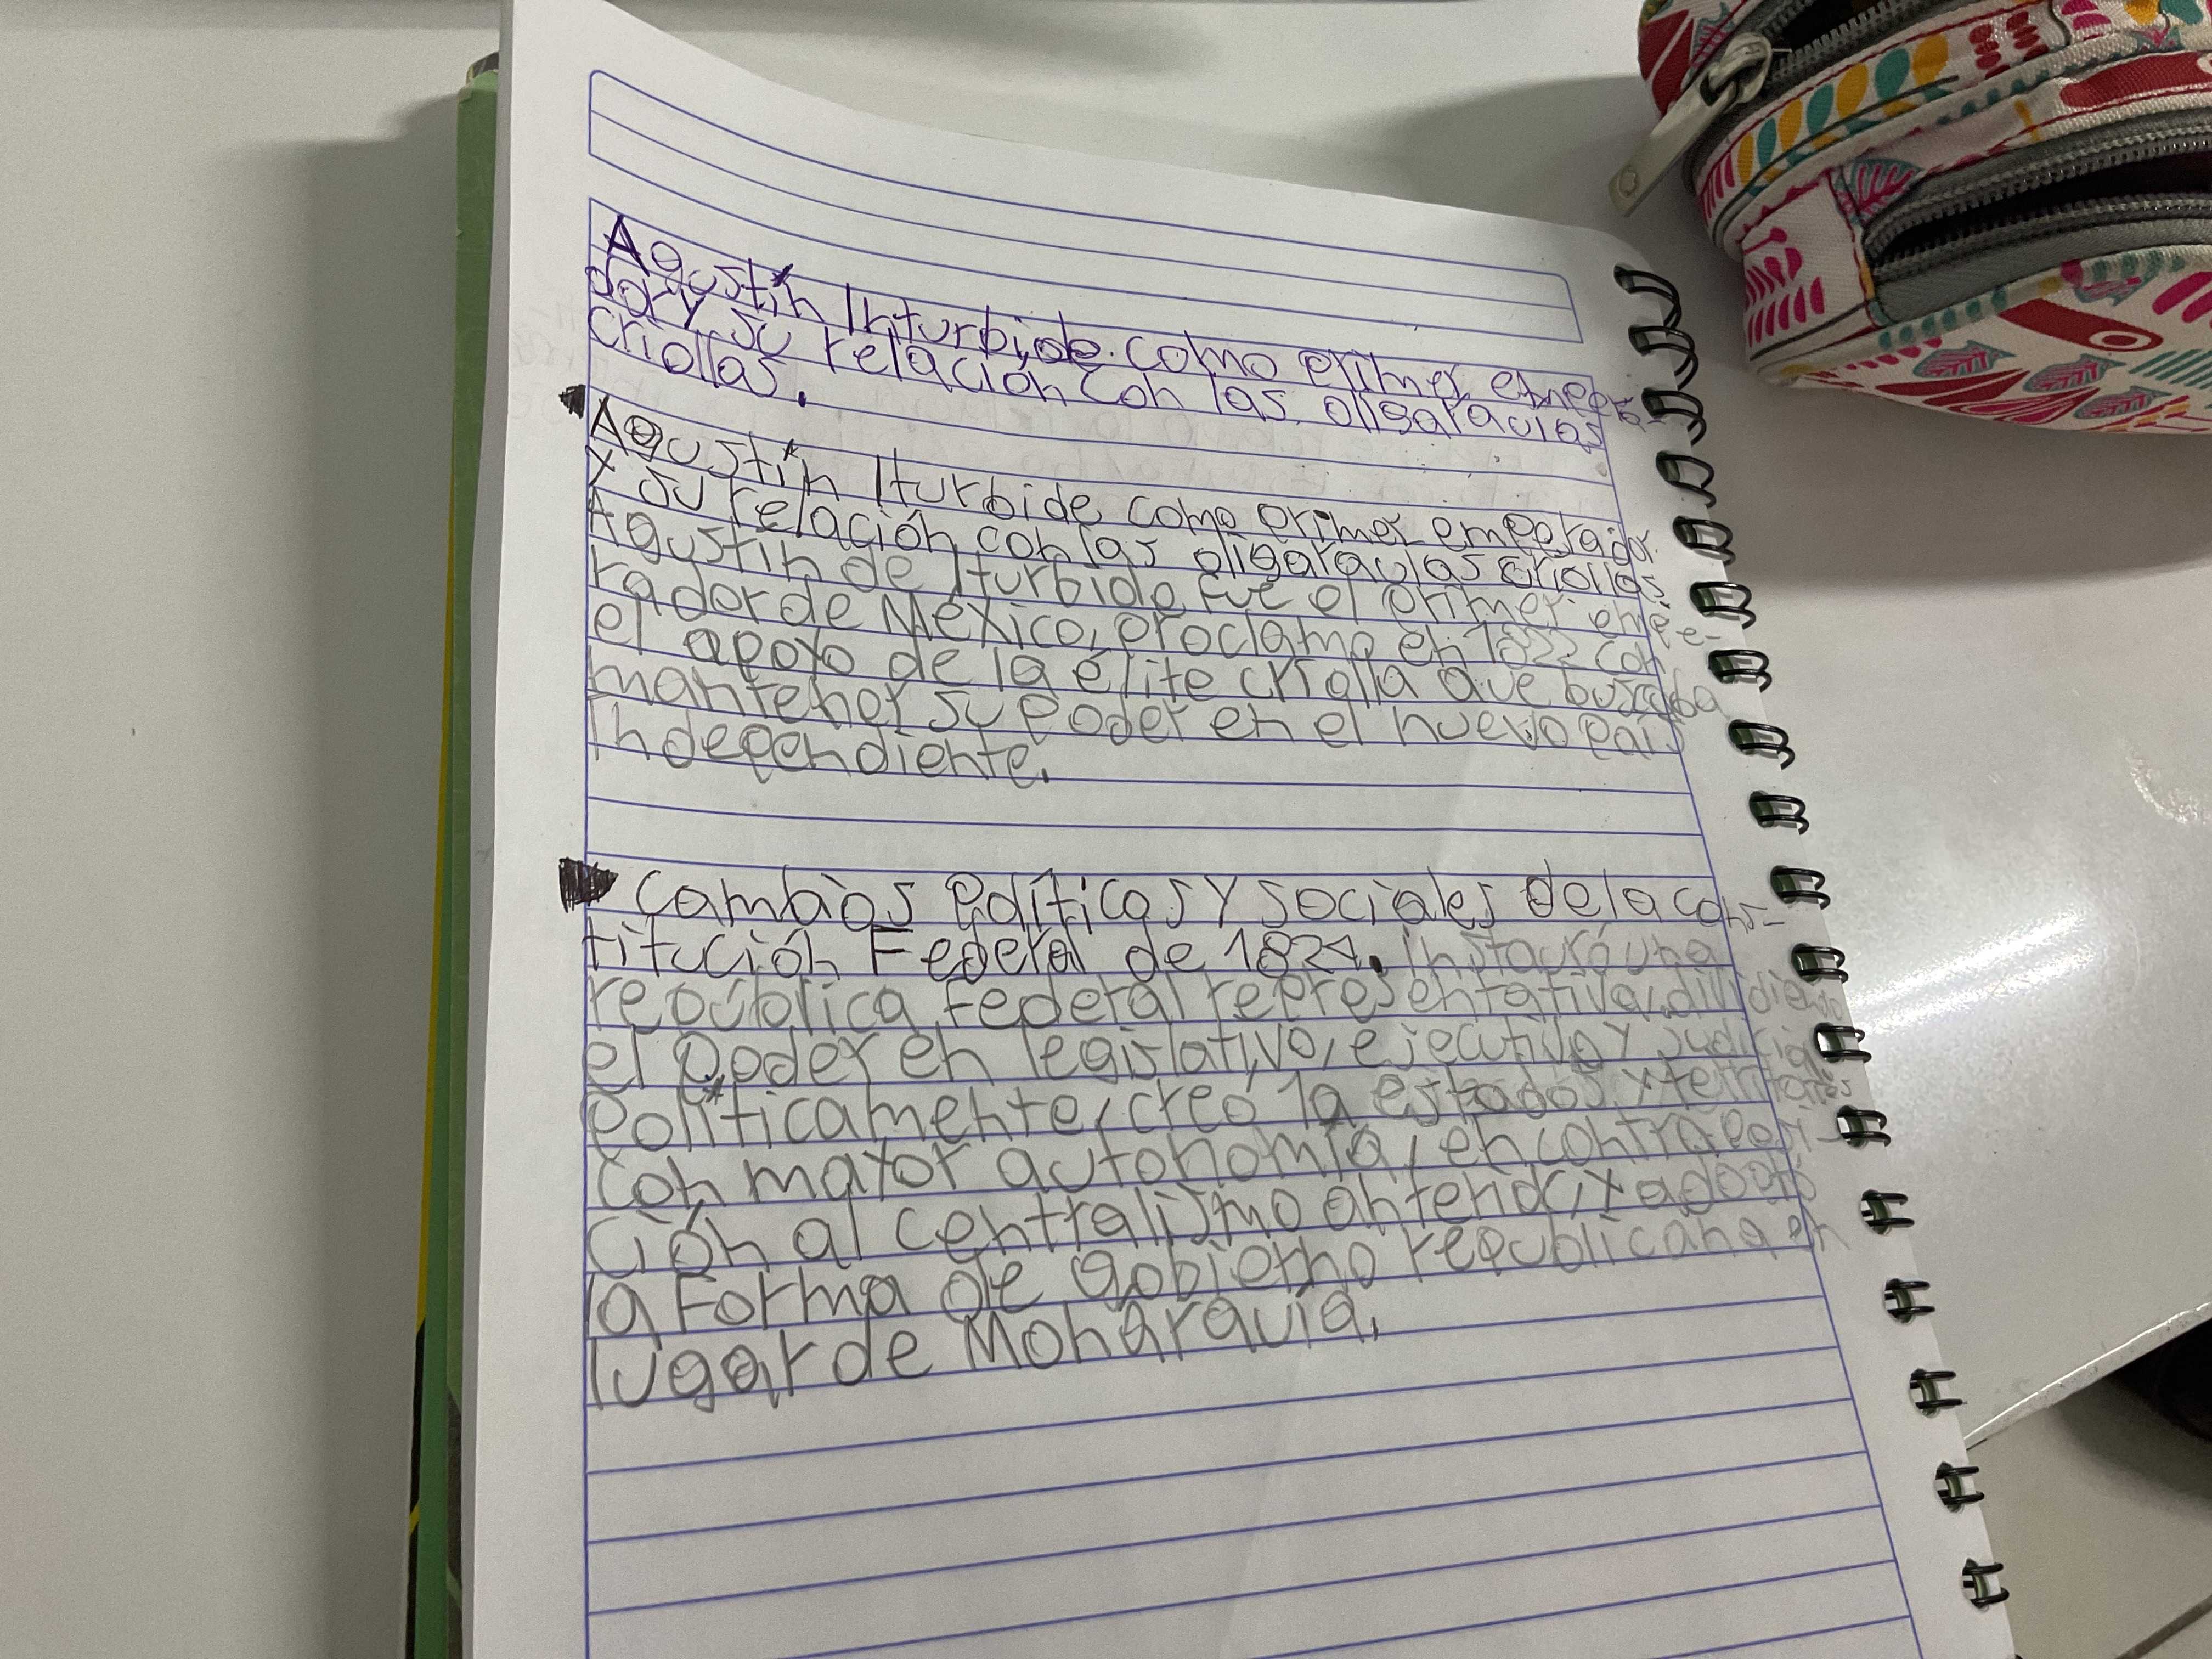 Agustín Inturbide como primer empera-
dor y su relación con las oligarquías
criollas.
Agustín Iturbide como primer emperador
y su relación con las oligarquías criollas
Agustín de Iturbide fue el primer empe-
rador de México, proclamo en 1822 con
el apoyo de la élite criolla que buscaba
mantener su poder en el nuevo país
independiente.
Cambios Políticos y sociales de la cons-
titución Federal de 1824. Instauró una
república federal representativa, dividiendo
el poder en legislativo, ejecutivo y judicial
políticamente, creó 19 estados y territorios
con mayor autonomía, en contraposi-
ción al centralismo anterior, y adoptó
la forma de gobierno republicana en
lugar de Monarquía.